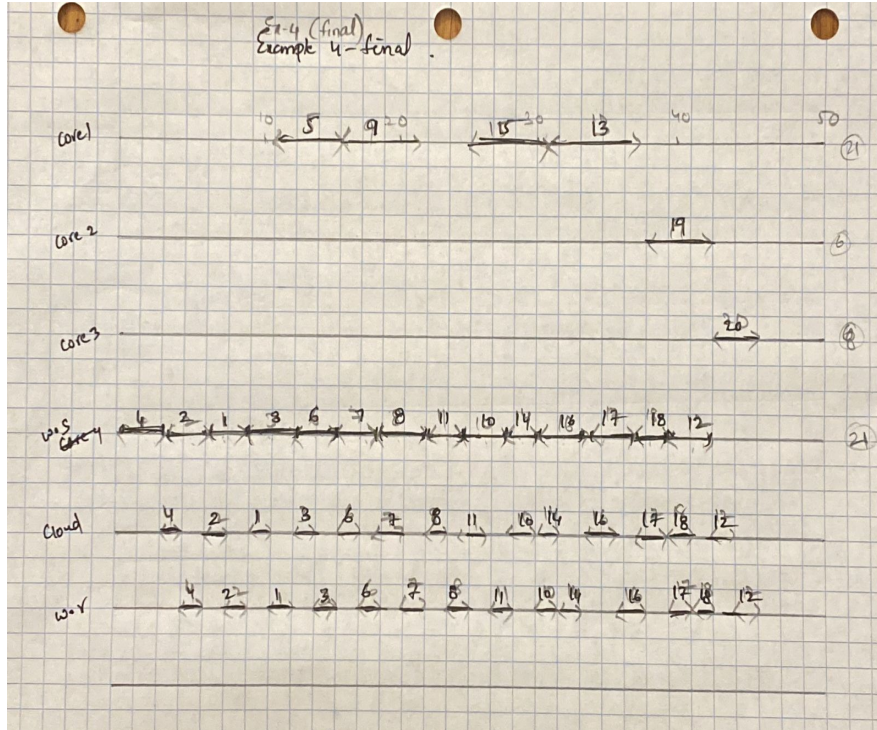 Ex-4 (final)
Example 4-final .
10 20 30 40 50
Core1 5 9 15 13 21
Core 2 19 6
Core3 20
w.s 4 2 1 3 6 7 8 11 10 14 16 17 18 12 21
Cloud 4 2 1 3 6 7 8 11 10 14 16 17 18 12
w.r 4 2 1 3 6 7 8 11 10 14 16 17 18 12